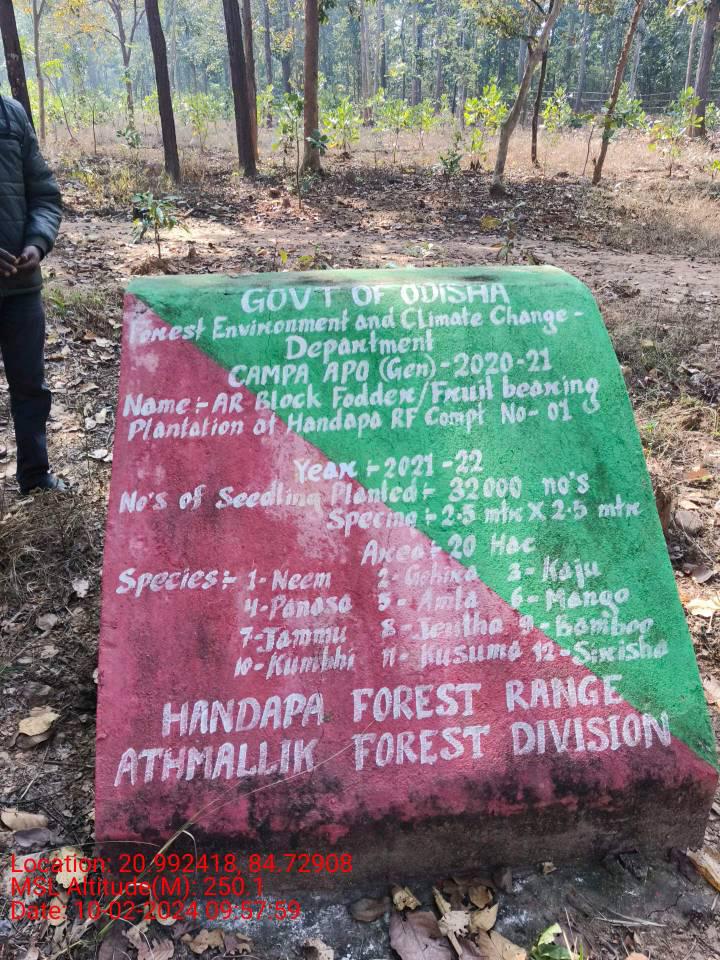 GOVT OF ODISHA
Forest Environment and Climate Change -
Department
CAMPA APO (Gen) - 2020-21
Name :- AR Block Fodder/Fruit bearing
Plantation at Handapa RF Compt No- 01
Year :- 2021-22
No's of Seedling Planted :- 32000 no's
Specing :- 2.5 mtr X 2.5 mtr
Area :- 20 Hac
Species :- 1- Neem 2- 3- Kaju
4- Panasa 5- Amla 6- Mango
7- Jammu 8- 9- Bamboo
10- Kumbhi 11- Kusuma 12- Sirisha
HANDAPA FOREST RANGE
ATHMALLIK FOREST DIVISION
Location: 20.992418, 84.72908
MSL Altitude(M): 250.1
Date: 10-02-2024 09:57:59